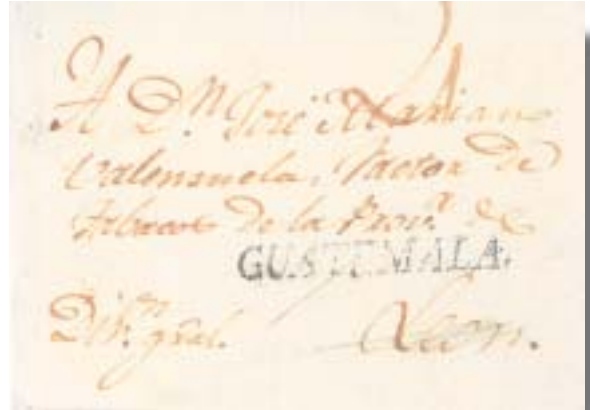 A D.n José Mariano
Valensuela, Factor De
Tabacos De la Prov.a de
GUATEMALA.
Dir.on gral. Leon.